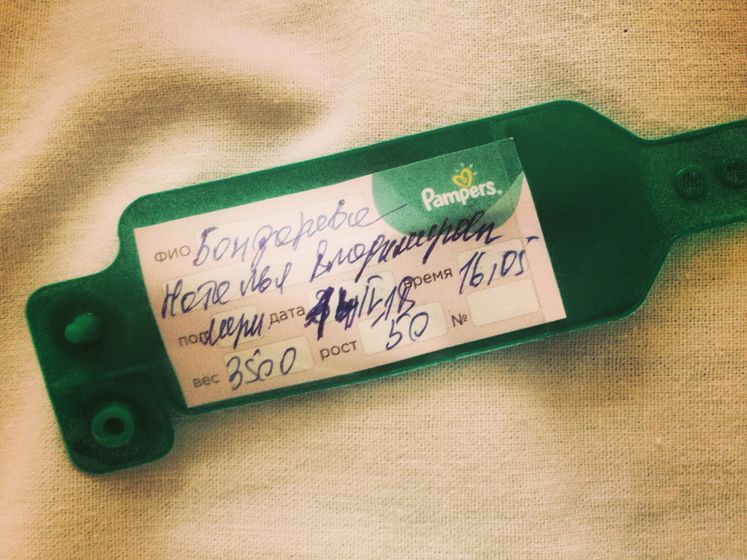 Pampers.
ФИО Бондарева
Наталья Владимировн
пол дата IV 18 время 16,05
вес 3500 рост 50 №